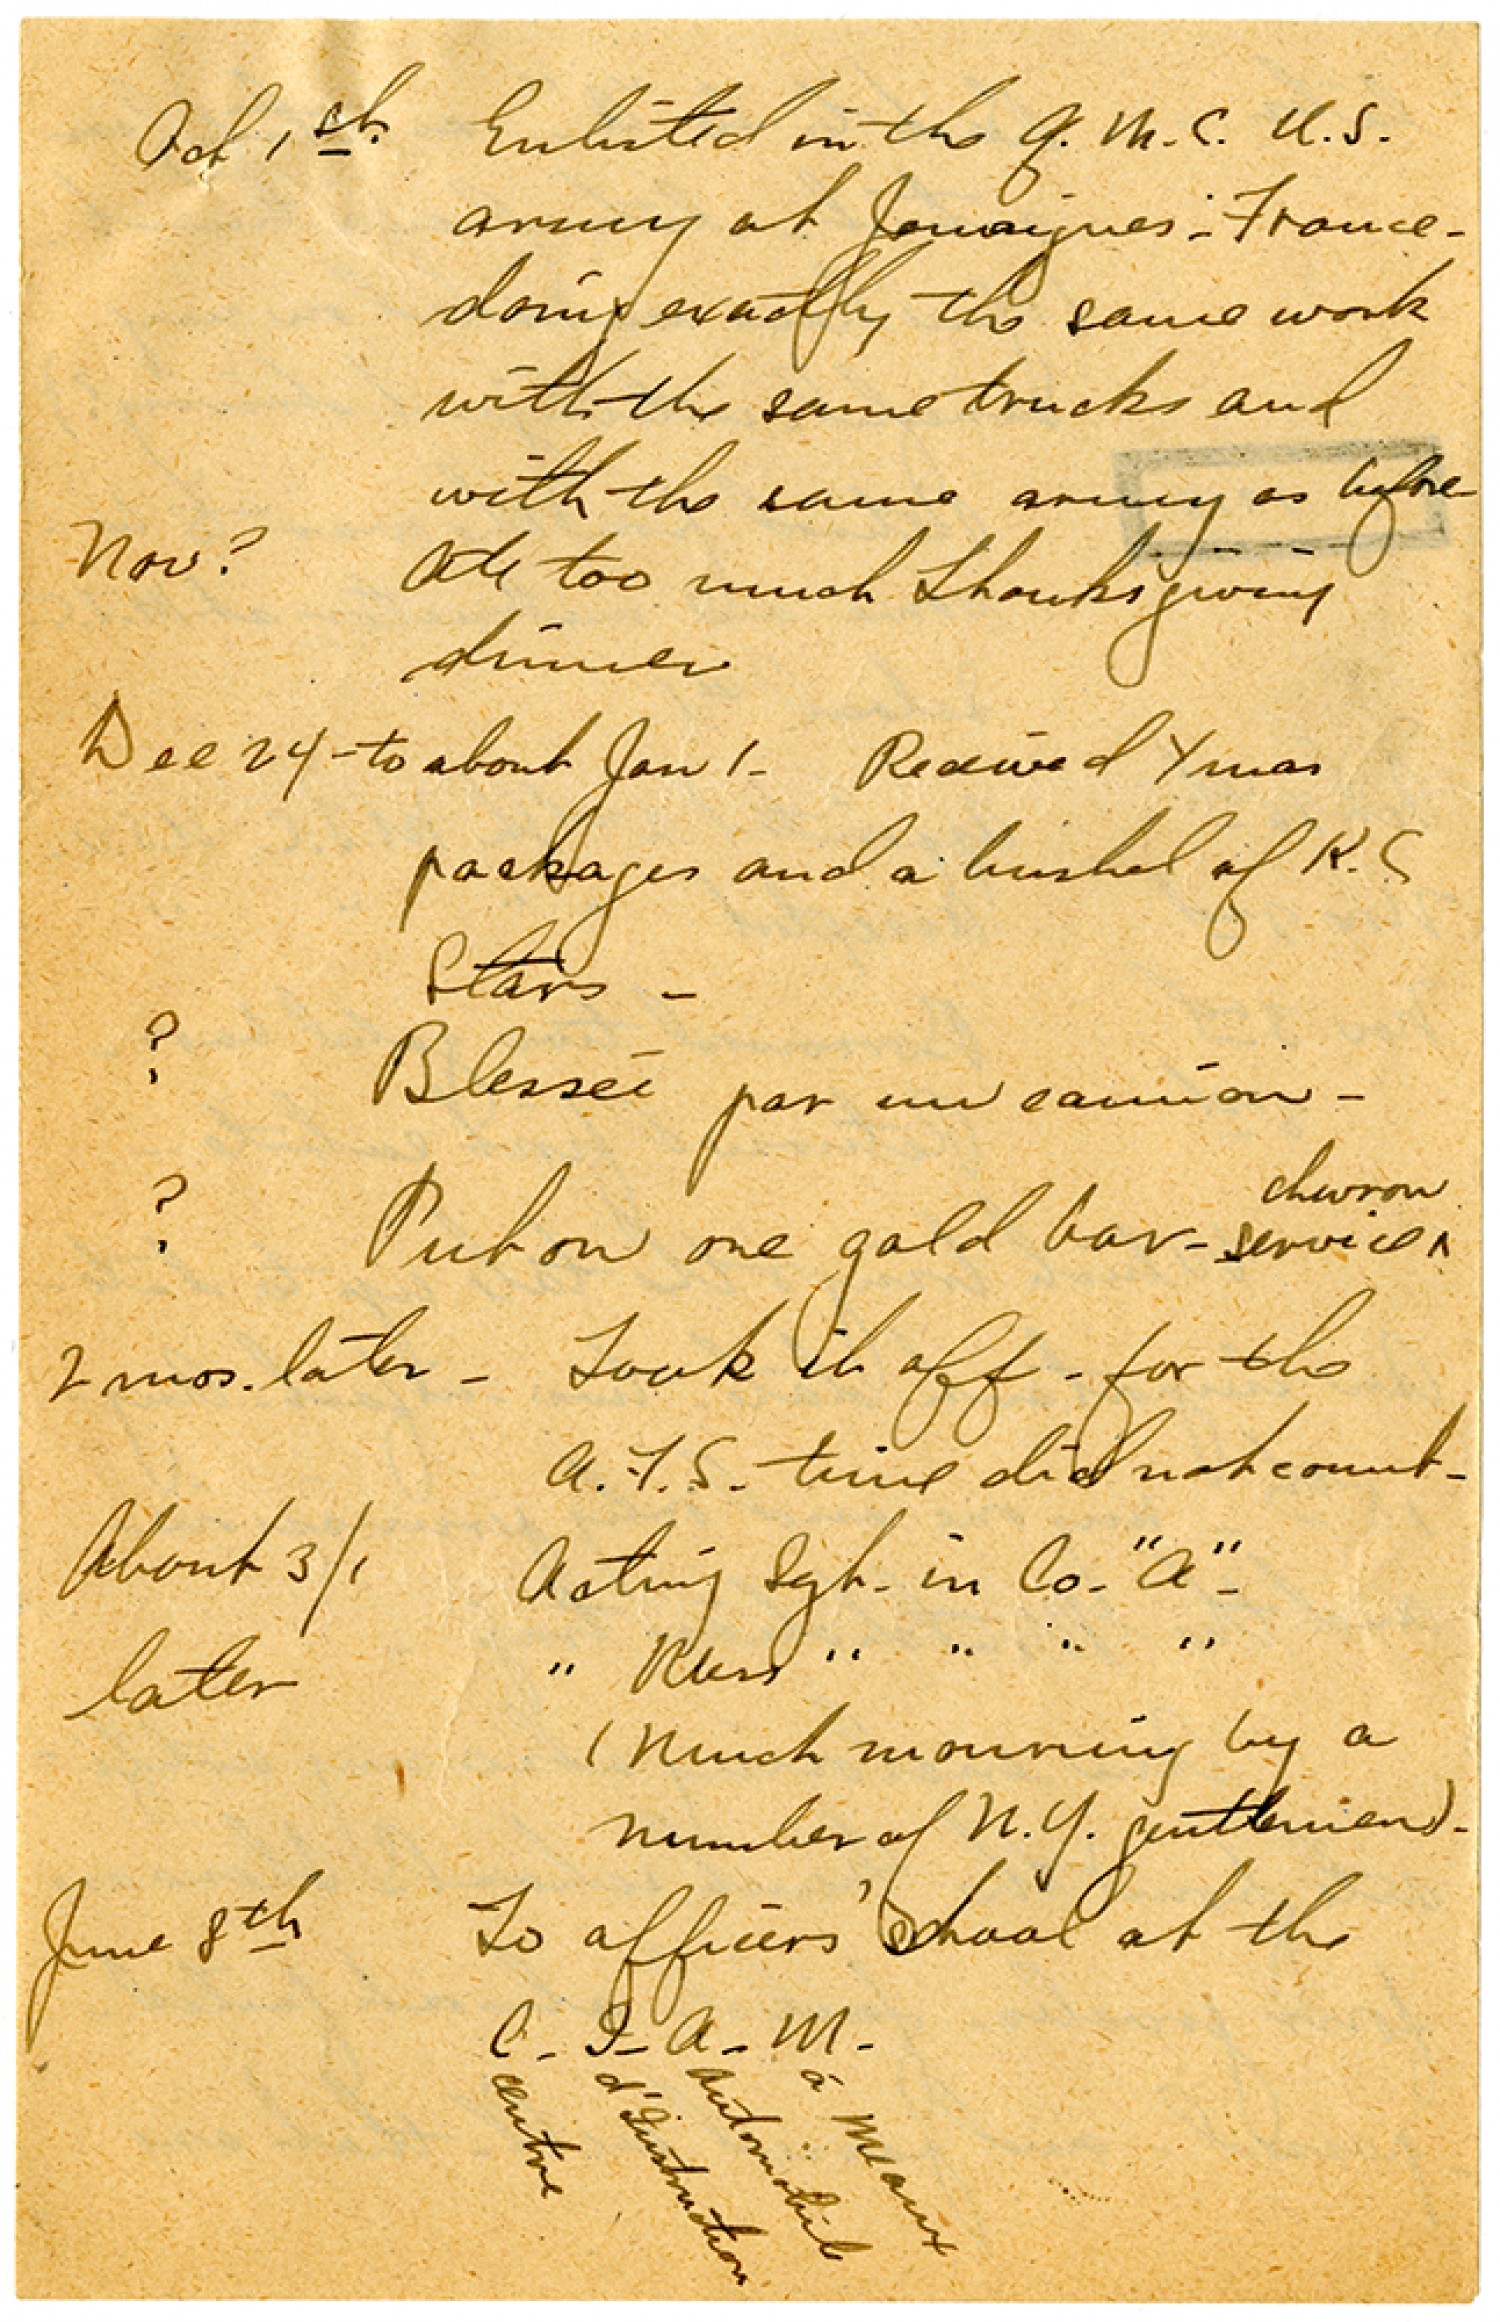 Oct 1st. Enlisted in the Q. M. C. U.S.
army at Jouaignes - France -
doing exactly the same work
with the same trucks and
with the same army as before -
Nov? Ate too much Thanksgiving
dinner
Dec 24 - to about Jan 1 - Received Xmas
packages and a bushel of K. C
Stars -
? Blesseé par un camion -
? Put on one gold bar - service chevron
2 mos. later - Took it off - for the
A. F. S. time did not count -
About 3/1 Acting Sgt. in Co. "A" -
later " " " " "
(Much mourning by a
number of N. Y. gentlemen) -
June 8th To officers' school at the
C - I - A - M -
Centre d'Instruction Automobile à Meaux